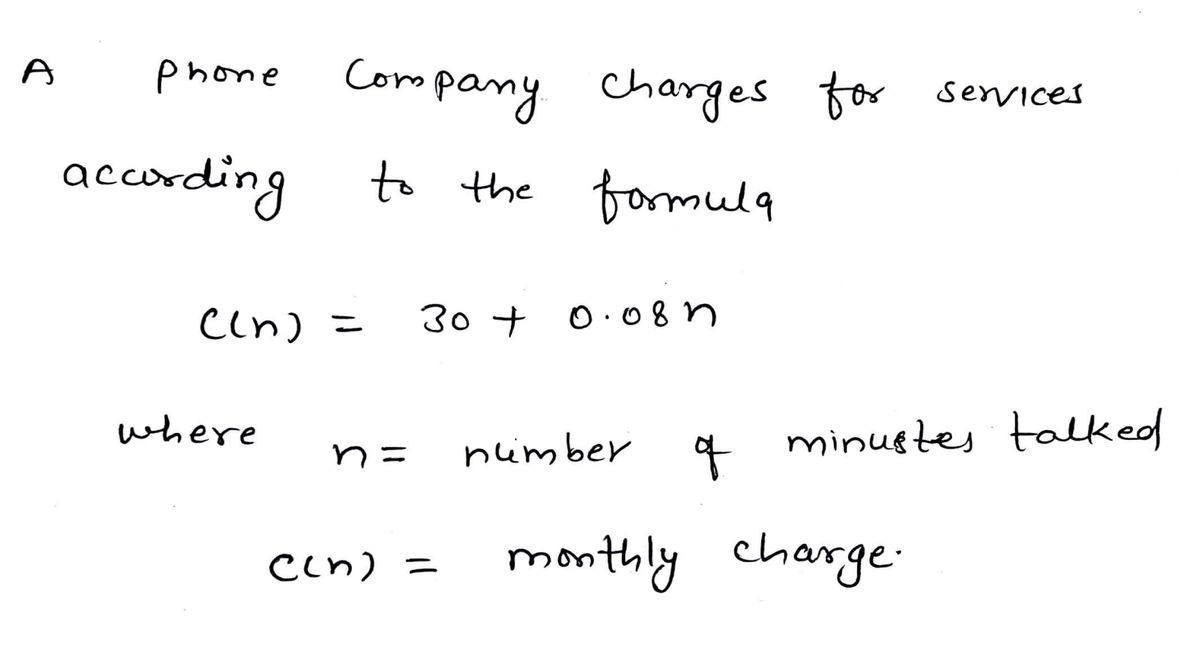 A phone Company charges for services
according to the formula
C(n) = 30 + 0.08n
where n = number of minustes talked
C(n) = monthly charge.